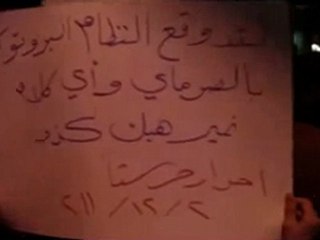 لقد وقع النظام البروتوكو
بالصرماي وأي كلام
غير هيك كذب
احرار حرستا
٢٠١١/١٢/٢٠